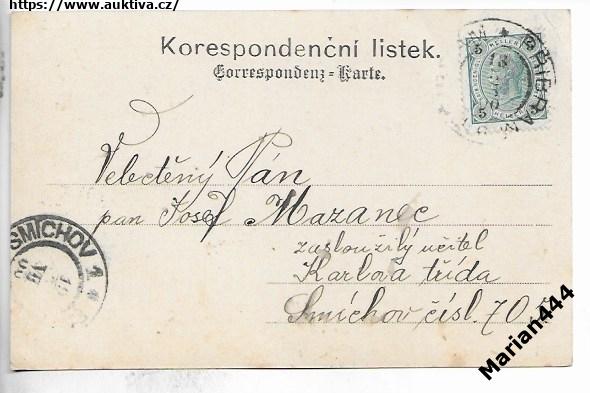 https://www.auktiva.cz/
Korespondenční listek.
Correspondenz-Karte.
5 HELLER 5
PŘIBRAM
Velectěný Pán
pan Josef Mazanec
zasloužilý učitel
Karlova třída
Smíchov čísl. 70
SMICHOV 1
Marian444